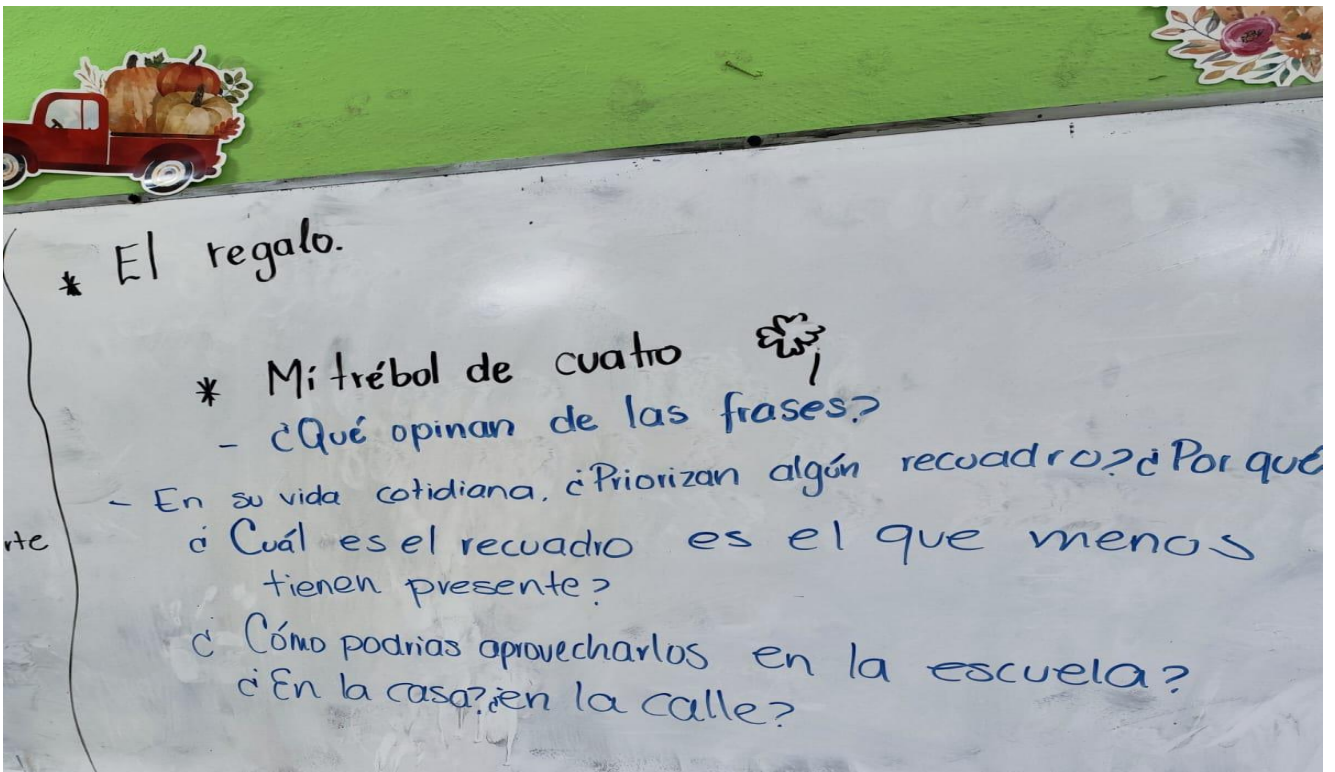 * El regalo.
* Mi trébol de cuatro
- ¿Qué opinan de las frases?
- En su vida cotidiana, ¿Priorizan algún recuadro? ¿Por qué
rte
¿Cuál es el recuadro es el que menos
tienen presente?
¿Cómo podrias aprovecharlos en la escuela?
¿En la casa? ¿en la calle?